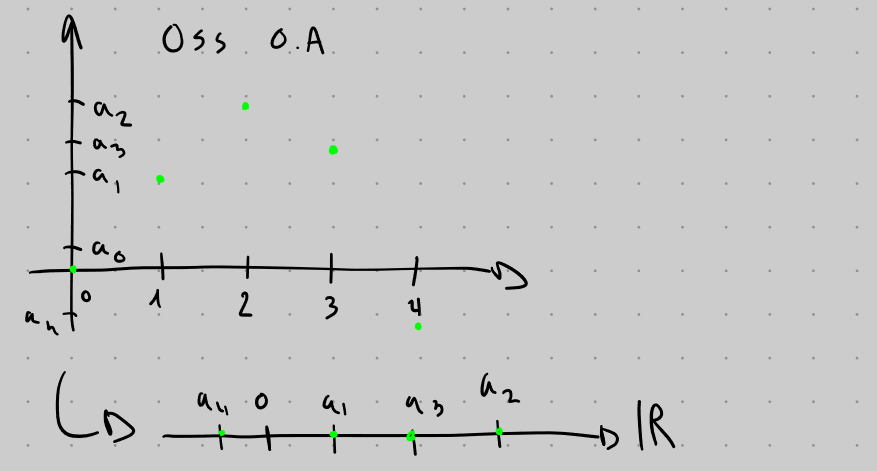 Oss 0.A
a₂
a₃
a₁
a₀
0 1 2 3 4
a₄
a₄ 0 a₁ a₃ a₂ ℝ